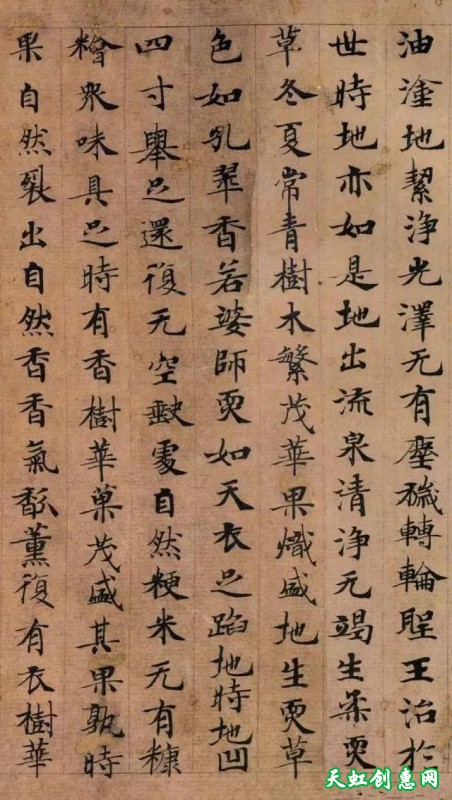 油塗地絜淨光澤无有塵穢轉輪聖王治於
世時地亦如是地出流泉清淨无竭生柔耎
草冬夏常青樹木繁茂華果熾盛地生耎草
色如孔翠香若婆師耎如天衣足蹈地時地凹
四寸舉足還復无空缺處自然粳米无有糠
糩衆味具足時有香樹華菓茂盛其果熟時
果自然裂出自然香香氣馚薰復有衣樹華
天虹创惠网